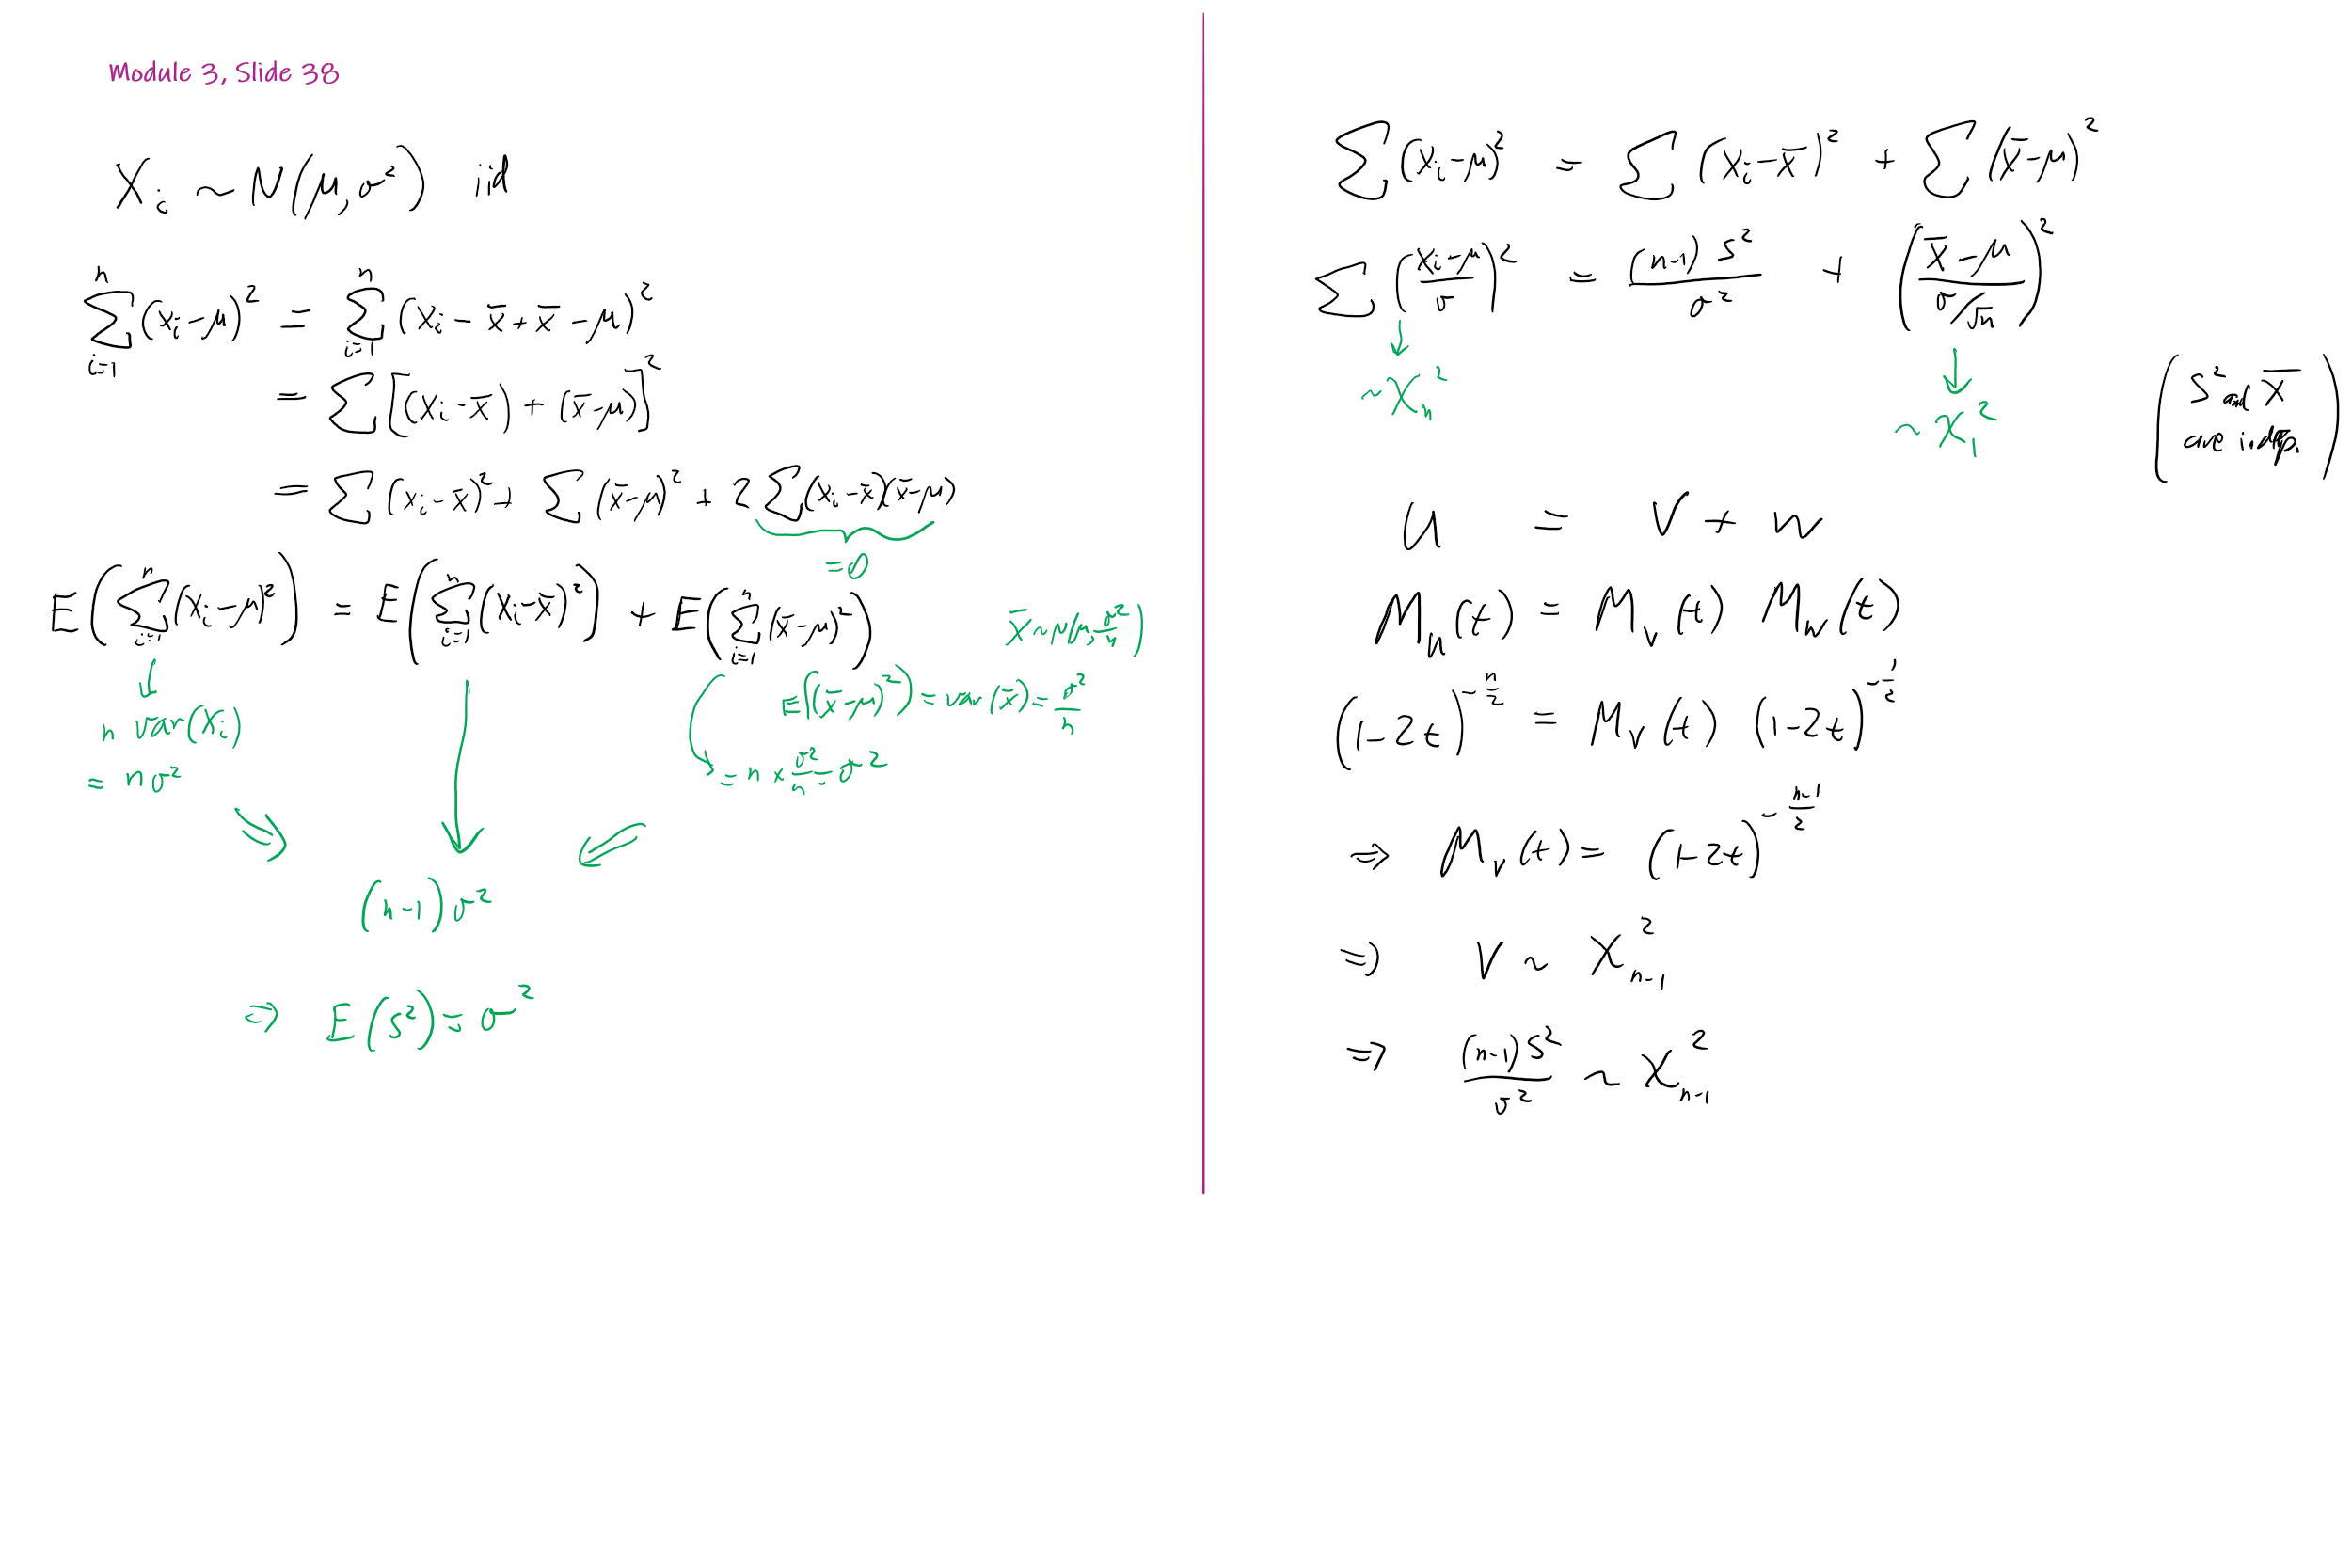 Module 3, Slide 38
X_i ~ N(μ, σ²) iid
∑_{i=1}^{n} (x_i - μ)² = ∑_{i=1}^{n} (x_i - x̄ + x̄ - μ)²
= ∑ [(x_i - x̄) + (x̄ - μ)]²
= ∑ (x_i - x̄)² + ∑ (x̄ - μ)² + 2 ∑ (x_i - x̄)(x̄ - μ)
= 0
E(∑_{i=1}^{n} (x_i - μ)²) = E(∑_{i=1}^{n} (x_i - x̄)²) + E(∑_{i=1}^{n} (x̄ - μ)²)
x̄ ~ N(μ, σ²/n)
↓
n var(X_i)
= nσ²
E((x̄ - μ)²) = var(x̄) = σ²/n
= n × σ²/n = σ²
⇒ ↓ ⇐
(n-1)σ²
⇒ E(s²) = σ²
∑ (x_i - μ)² = ∑ (x_i - x̄)² + ∑ (x̄ - μ)²
∑ ((x_i - μ)/σ)² = (n-1)s²/σ² + ((x̄ - μ)/(σ/√n))²
↓ ↓
~ χ_n² ~ χ_1²
(S² and X̄
are indep.)
U = V + W
M_U(t) = M_V(t) M_W(t)
(1-2t)^{-n/2} = M_V(t) (1-2t)^{-1/2}
⇒ M_V(t) = (1-2t)^{-(n-1)/2}
⇒ V ~ χ²_{n-1}
⇒ (n-1)S²/σ² ~ χ²_{n-1}